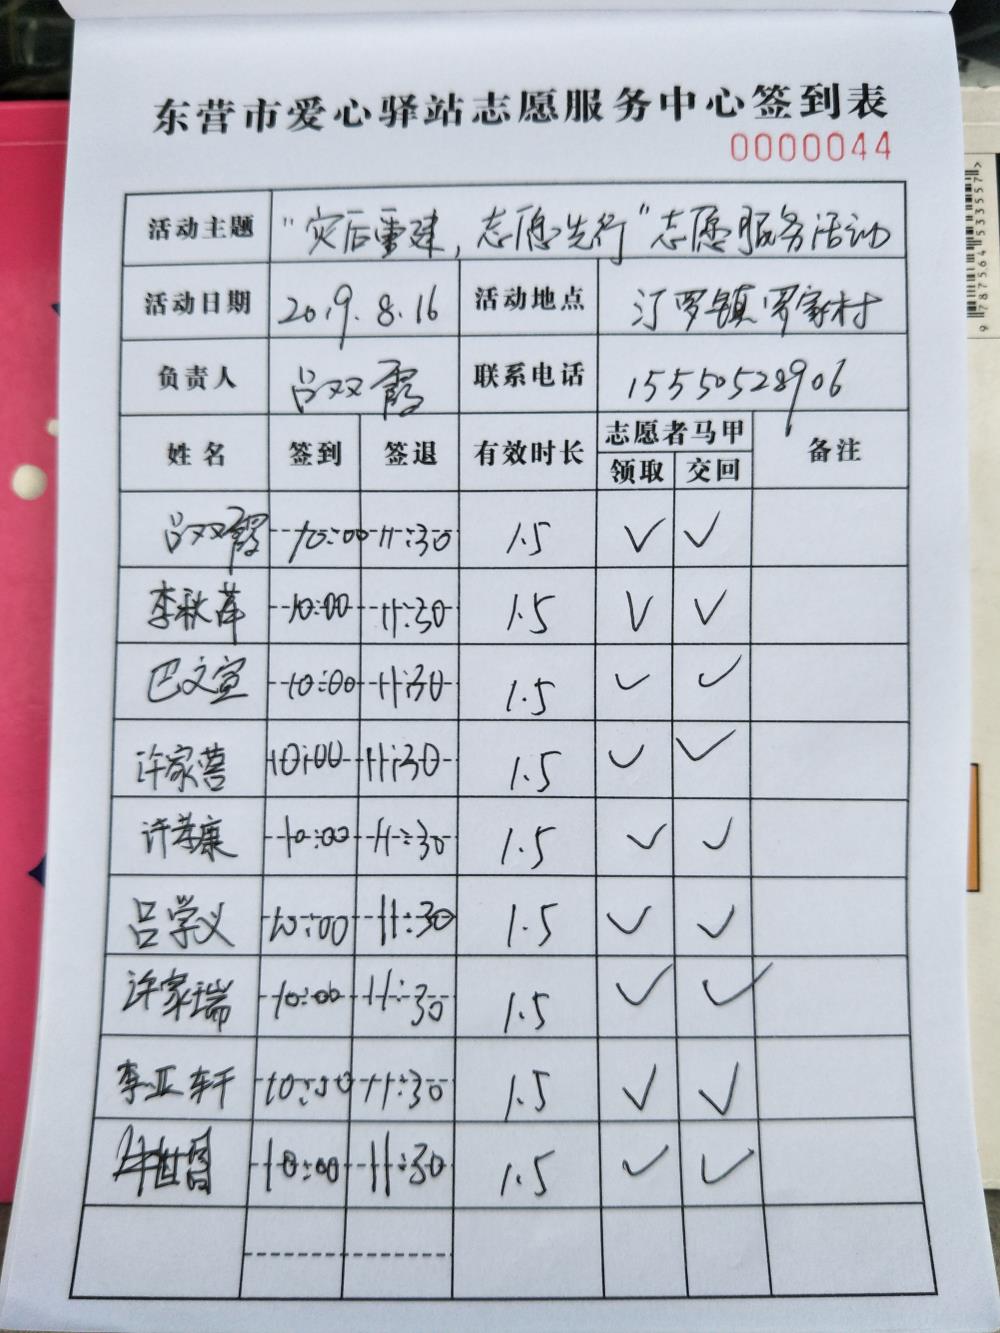 东营市爱心驿站志愿服务中心签到表
0000044
活动主题 “灾后重建，志愿先行”志愿服务活动
活动日期 2019.8.16 活动地点 汀罗镇罗家村
负责人 吕双霞 联系电话 15550528906
姓名 签到 签退 有效时长 志愿者马甲 备注
领取 交回
吕双霞 10:00 11:30 1.5 ✓ ✓
李秋萍 10:00 11:30 1.5 ✓ ✓
巴文宣 10:00 11:30 1.5 ✓ ✓
许家善 10:00 11:30 1.5 ✓ ✓
许孝康 10:00 11:30 1.5 ✓ ✓
吕学义 10:00 11:30 1.5 ✓ ✓
许家瑞 10:00 11:30 1.5 ✓ ✓
李亚轩 10:00 11:30 1.5 ✓ ✓
10:00 11:30 1.5 ✓ ✓
9787564533557